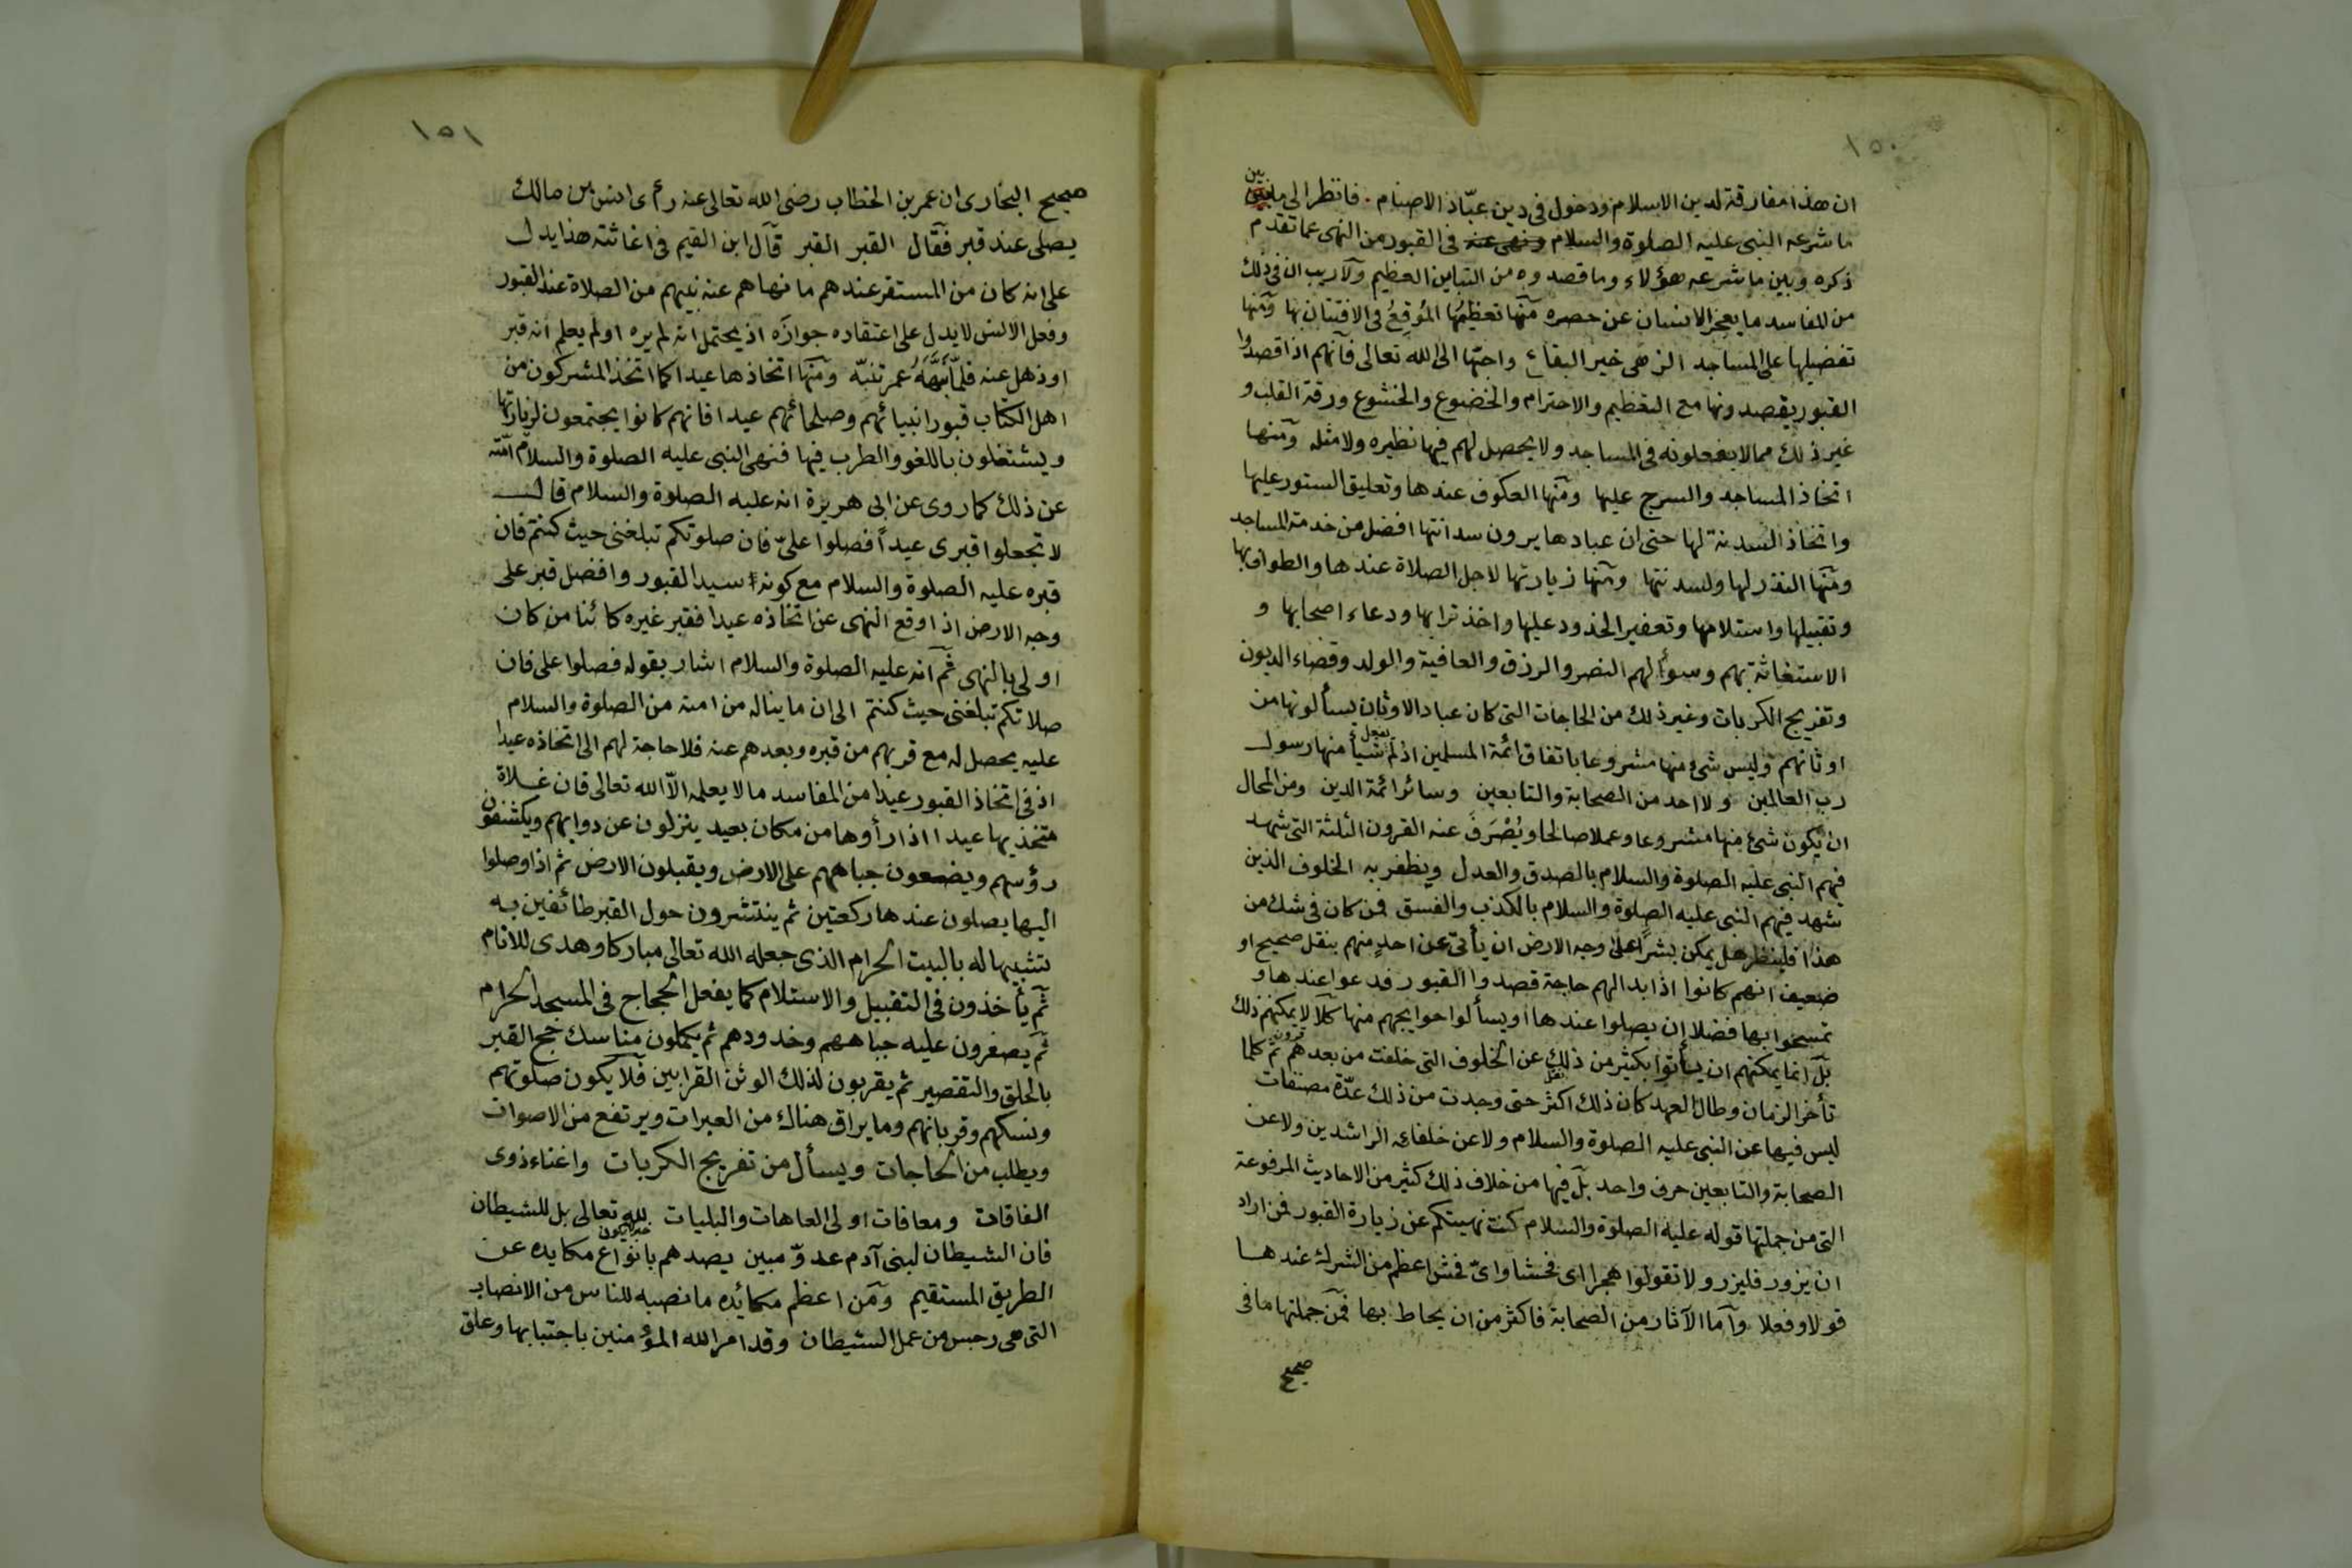 ١٥٠
ان هذا مفارقة لدين الاسلام ودخول فى دين عبّاد الاصنام . فانظر الى ما بين
ما شرعه النبى عليه الصلوة والسلام ونهى عنه فى القبور من النهى عما تقدم
ذكره وبين ما شرعه هؤلاء وما قصدوه من التباين العظيم ولا ريب ان فى ذلك
من المفاسد ما يعجز الانسان عن حصره منها تعظيمها المُوقِعُ فى الافتتان بها ومنها
تفضيلها على المساجد التى هى خير البقاع واحبّها الى الله تعالى فانهم اذا قصدوا
القبور يقصدونها مع التعظيم والاحترام والخضوع والخشوع ورقة القلب و
غير ذلك مما لا يفعلونه فى المساجد ولا يحصل لهم فيها نظيره ولا مثله ومنها
اتخاذ المساجد والسرج عليها ومنها العكوف عندها وتعليق الستور عليها
واتخاذ السدنة لها حتى ان عبادها يرون سدانتها افضل من خدمة المساجد
ومنها النذر لها ولسدنتها ومنها زيارتها لاجل الصلاة عندها والطواف بها
وتقبيلها واستلامها وتعفير الخدود عليها واخذ ترابها ودعاء اصحابها و
الاستغاثة بهم وسؤالهم النصر والرزق والعافية والولد وقضاء الديون
وتفريج الكربات وغير ذلك من الحاجات التى كان عباد الاوثان يسألونها من
اوثانهم وليس شئ منها مشروعا باتفاق ائمة المسلمين اذ لم يفعل شيأ منها رسول
رب العالمين ولا احد من الصحابة والتابعين وسائر ائمة الدين ومن المحال
ان يكون شئ منها مشروعا وعملا صالحا ويُصْرَفَ عنه القرون الثلثة التى شهد
فيهم النبى عليه الصلوة والسلام بالصدق والعدل ويظفر به الخلوف الذين
شهد فيهم النبى عليه الصلوة والسلام بالكذب والفسق فمن كان فى شك من
هذا فلينظر هل يمكن بشرًا على وجه الارض ان يأتى عن احدٍ منهم بنقل صحيح او
ضعيف انهم كانوا اذا بدا لهم حاجة قصدوا القبور فدعوا عندها و
تمسحوا بها فضلا ان يصلوا عندها او يسألوا حوايجهم منها كلا لا يمكنهم ذلك
بل انما يمكنهم ان يأتوا بكثير من ذلك عن الخلوف التى خلفت من بعدهم ثم كلما
تأخر الزمان وطال العهد كان ذلك اكثر حتى وجدت من ذلك عدّة مصنفات
ليس فيها عن النبى عليه الصلوة والسلام ولا عن خلفائه الراشدين ولا عن
الصحابة والتابعين حرف واحد بل فيها من خلاف ذلك كثير من الاحاديث المرفوعة
التى من جملتها قوله عليه الصلوة والسلام كنت نهيتكم عن زيارة القبور فمن اراد
ان يزور فليزر ولا تقولوا هجرا اى فحشا واىّ فحش اعظم من الشرك عندها
قولا وفعلا وأما الآثار من الصحابة فاكثر من ان يحاط بها فمن جملتها ما فى
صحيح
١٥١
صحيح البخارى ان عمر بن الخطاب رضى الله تعالى عنه رءى انس بن مالك
يصلى عند قبر فقال القبر القبر قال ابن القيم فى اغاثته هذا يدل
على انه كان من المستقر عندهم ما نهاهم عنه نبيهم من الصلاة عند القبور
وفعل الانس لا يدل على اعتقاده جوازه اذ يحتمل انه لم يره او لم يعلم انه قبر
او ذهل عنه فلمّا نبّهَهُ عمر تنبّه ومنها اتخاذها عيدا كما اتخذ المشركون من
اهل الكتاب قبور انبيائهم وصلحائهم عيدا فانهم كانوا يجتمعون لزيارتها
ويشتغلون باللغو والطرب فيها فنهى النبى عليه الصلوة والسلام امّته
عن ذلك كما روى عن ابى هريرة انه عليه الصلوة والسلام قال
لا تجعلوا قبرى عيدًا فصلوا علىّ فان صلوتكم تبلغنى حيث كنتم فان
قبره عليه الصلوة والسلام مع كونه سيد القبور وافضل قبر على
وجه الارض اذا وقع النهى عن اتخاذه عيدا فقبر غيره كائنا من كان
اولى بالنهى ثم انه عليه الصلوة والسلام اشار بقوله فصلوا على فان
صلاتكم تبلغنى حيث كنتم الى ان ما يناله من امته من الصلوة والسلام
عليه يحصل له مع قربهم من قبره وبعدهم عنه فلا حاجة لهم الى اتخاذه عيدا
اذ فى اتخاذ القبور عيدا من المفاسد ما لا يعلمه الاّ الله تعالى فان غلاة
متخذيها عيدا اذا رأوها من مكان بعيد ينزلون عن دوابهم ويكشفون
رؤسهم ويضعون جباههم على الارض ويقبلون الارض ثم اذا وصلوا
اليها يصلون عندها ركعتين ثم ينتشرون حول القبر طائفين به
تشبيها له بالبيت الحرام الذى جعله الله تعالى مباركا وهدى للانام
ثم يأخذون فى التقبيل والاستلام كما يفعل الحجاج فى المسجد الحرام
ثم يعفرون عليه جباههم وخدودهم ثم يكملون مناسك حج القبر
بالحلق والتقصير ثم يقربون لذلك الوثن القرابين فلا يكون صلوتهم
ونسكهم وقربانهم وما يراق هناك من العبرات ويرتفع من الاصوات
ويطلب من الحاجات ويسأل من تفريج الكربات واغناء ذوى
الفاقات ومعافات اولى العاهات والبليات لله تعالى بل للشيطان
فان الشيطان لبنى آدم عدوّ مبين يصدهم بانواع مكايده عن
الطريق المستقيم ومن اعظم مكائده ما نصبه للناس من الانصاب
التى هى رجس من عمل الشيطان وقد امر الله المؤمنين باجتنابها وعلق